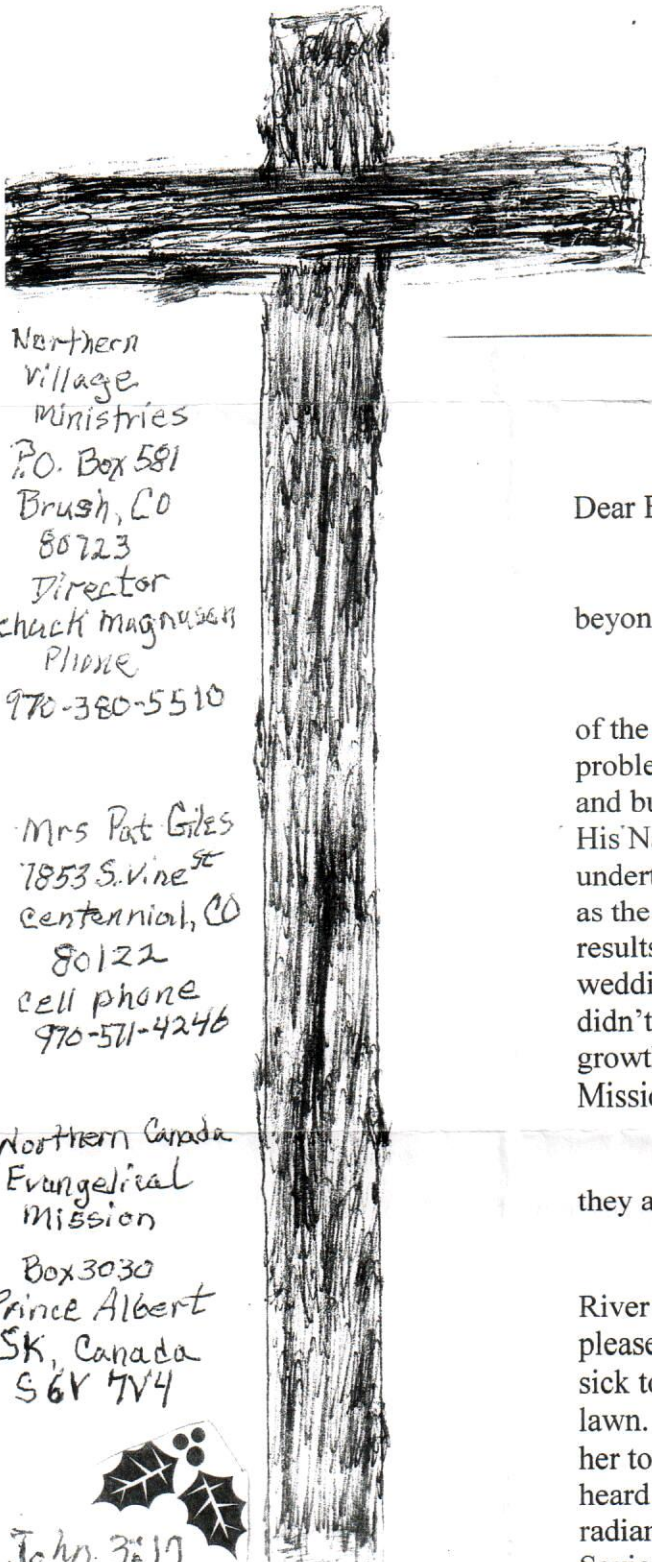 Northern
Village
Ministries
P.O. Box 581
Brush, CO
80723
Director
Chuck Magnusen
Phone
970-380-5510
Mrs Pat Giles
7853 S. Vine St
Centennial, CO
80122
Cell phone
970-571-4246
Northern Canada
Evangelical
Mission
Box 3030
Prince Albert
SK, Canada
S6V 7V4
John 3:17
Dear
beyon
of the
proble
and bu
His Na
undert
as the
results
weddi
didn't
growt
Missio
they a
River
please
sick to
lawn.
her to
heard
radian